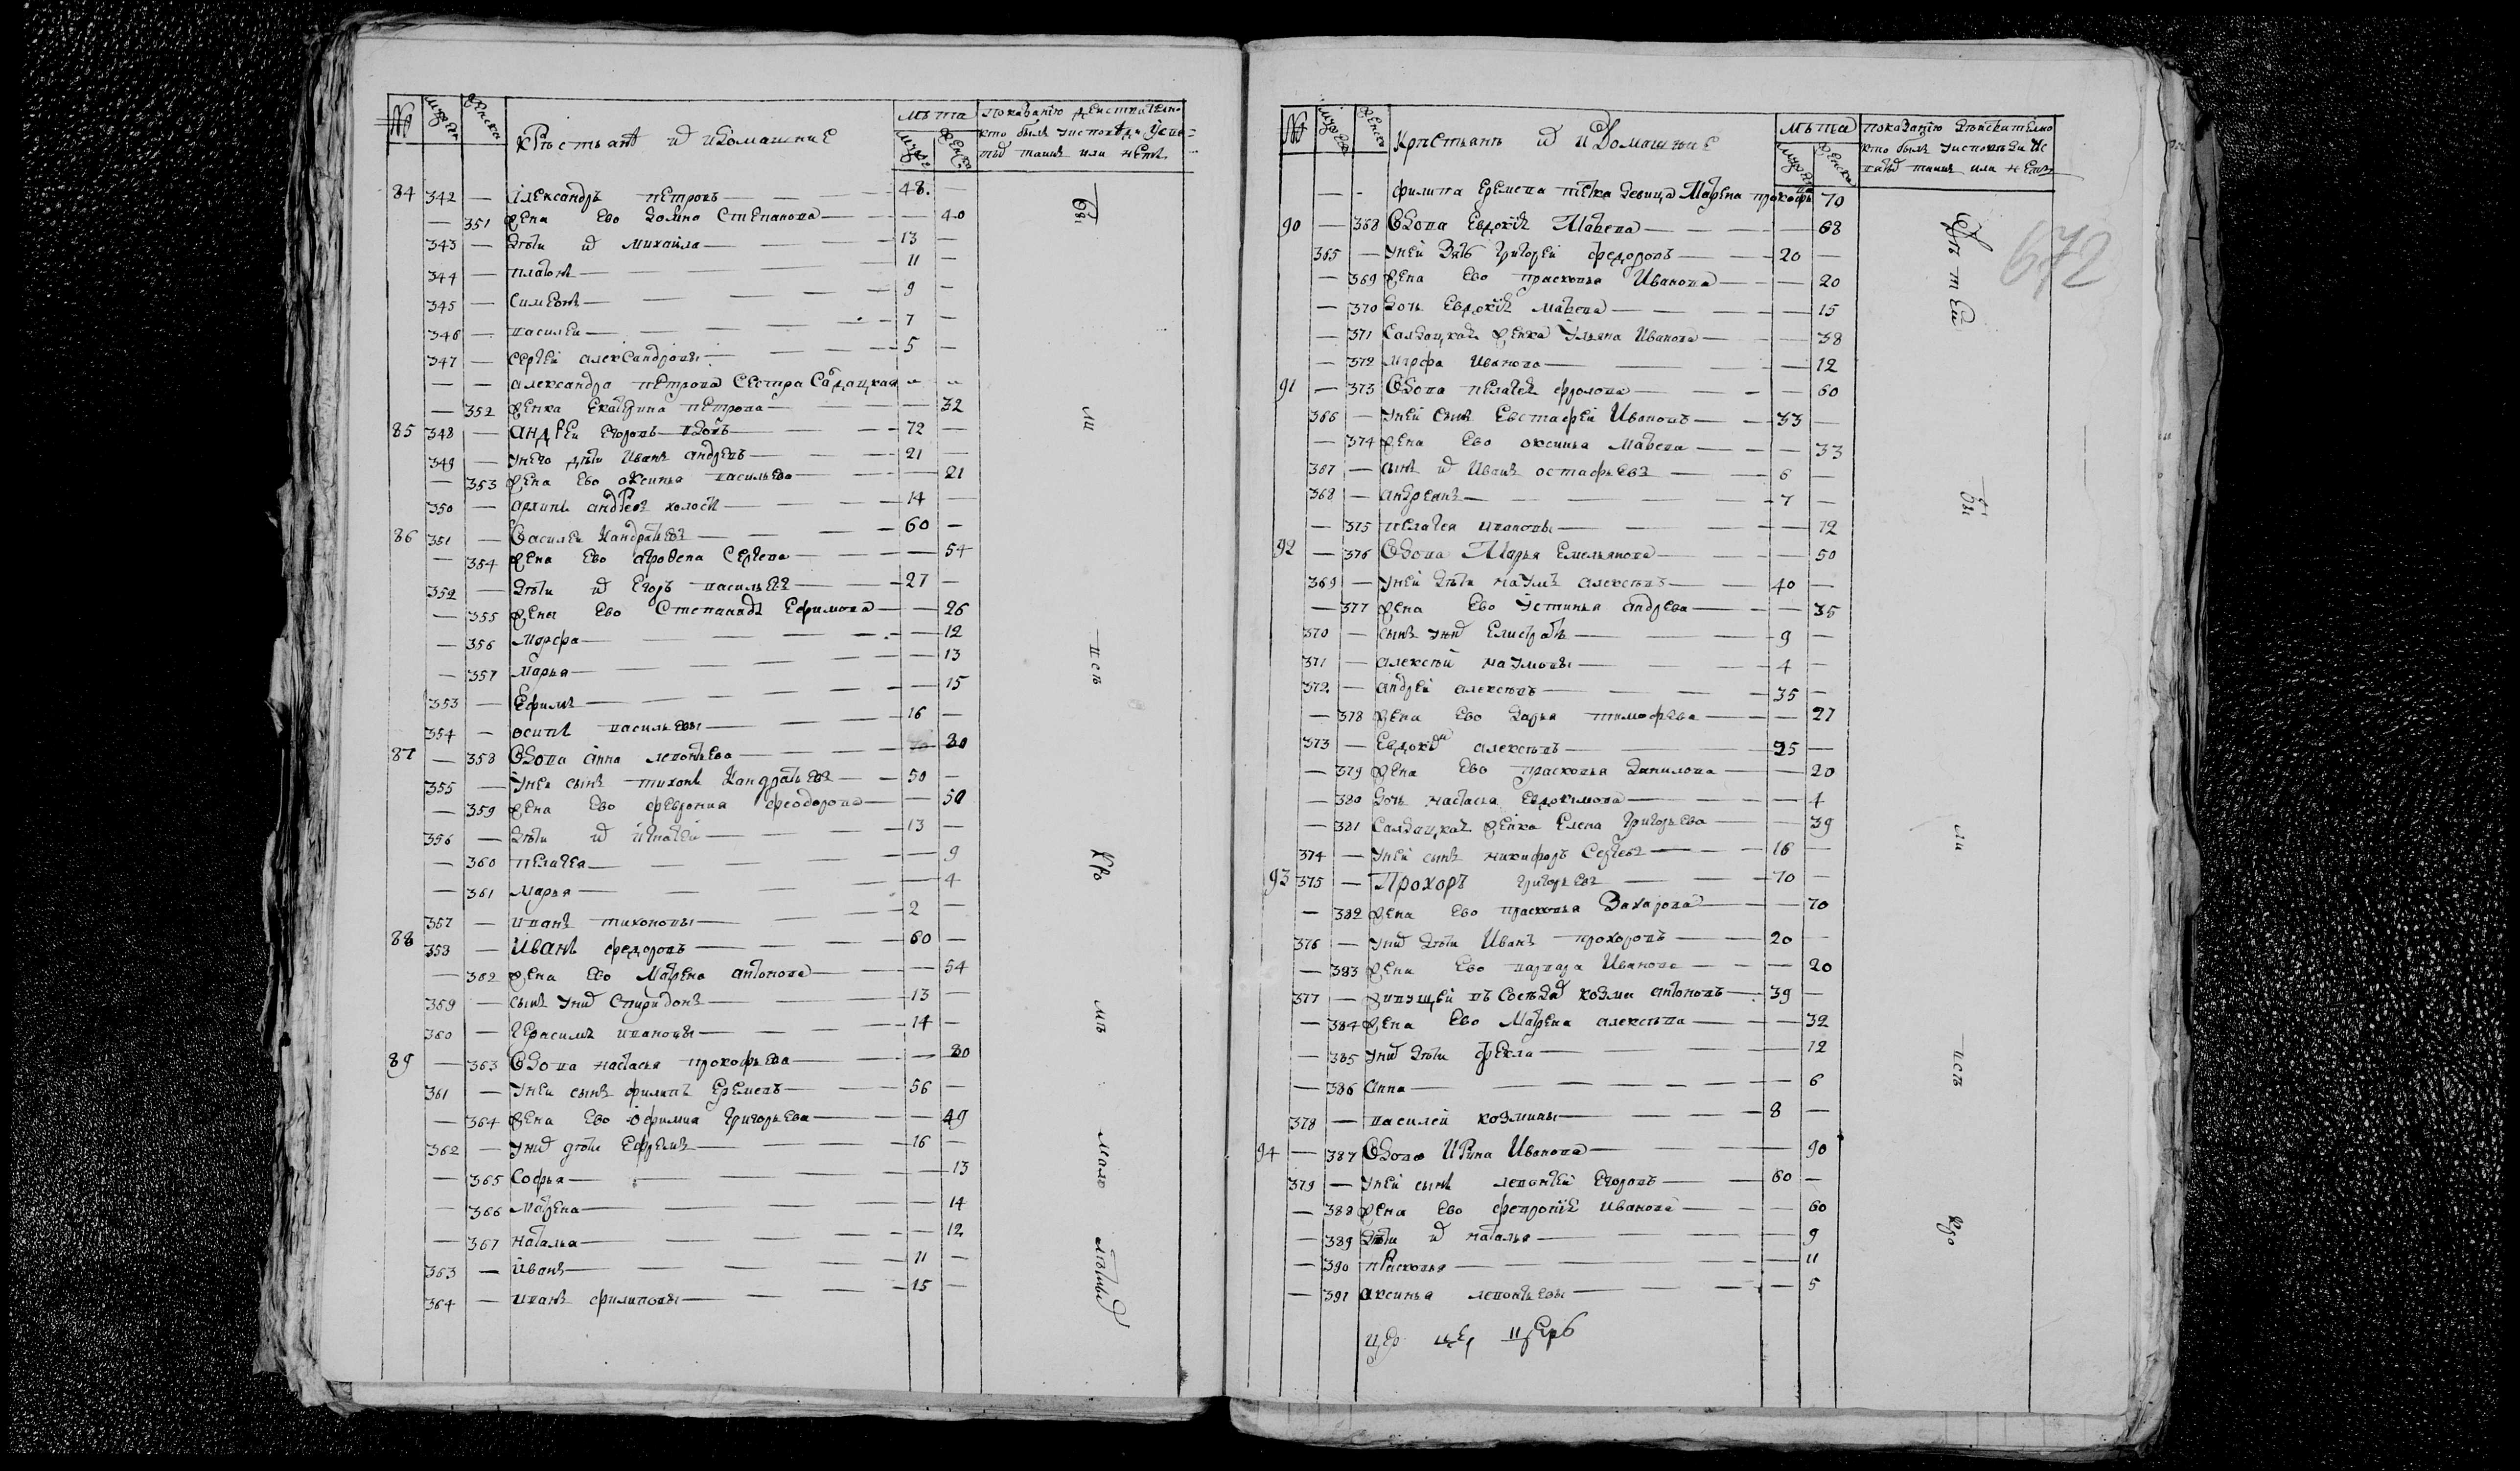 № мужеск женска крестьянъ и их домашние лѣта мужс женско показанїю действително
кто былъ уисповеди
таинъ или нетъ
84 342 — александръ петровъ — 48. —
— 351 жена ево домна степанова — — 40
343 — дѣти их михаила — 13 —
344 — платонъ — 11 —
345 — симеонъ — 9 —
346 — василеи — 7 —
347 — сергеи александровы — 5 —
— — александра петрова сестра салдацкая
— 352 женка екатерина петрова — — 32
85 348 — андреи егоровъ вдовъ — 72 —
349 — унего дѣти иванъ андреевъ — 21 —
— 353 жена ево оксинья васильева — — 21
350 — архипъ андреевъ холостъ — 14 —
86 351 — василеи кондратьевъ — 60 —
— 354 жена ево агрофена сергеева — — 54
352 — дѣти их егоръ васильевъ — 27 —
— 355 жена ево степанида ефимова — — 26
— 356 марфа — — 12
— 357 марья — — 13
353 — ефимъ — — 15
354 — осипъ васильевы — 16 —
87 — 358 вдова анна леонтьева — 80
355 — унеи сынъ тихонъ кондратьевъ — 50 —
— 359 жена ево феврониа феодорова — — 50
356 — дѣти их игнатеи — 13 —
— 360 пелагея — — 9
— 361 марья — — 4
357 — иванъ тихоновы — 2 —
88 358 — иванъ федоровъ — 60 —
— 362 жена ево матрена антонова — — 54
359 — сынъ уних спиридонъ — 13 —
360 — герасимъ ивановы — 14 —
89 — 363 вдова настасья прокофьева — — 80
361 — унеи сынъ филипъ еремеевъ — 56 —
— 364 жена ево офимиа григорьева — — 49
362 — уних дѣти ефремъ — 16 —
— 365 софья — — 13
— 366 матрена — — 14
— 367 наталья — — 12
363 — иванъ — 11 —
364 — иванъ филиповы — 15 —
бы
ли
всѣ
кро
мѣ
мало
лѣтных
№ мужеск женск крестьянъ и их домашние лѣта мужс женска показанїю дѣиствително
кто былъ уисповѣди
таинъ или нетъ
— - филипа еремеева тетка девица матрена прокофьева 70
90 — 368 вдова евдокия матвеева — — 68
365 — унеи зять григореи федоровъ — 20 —
— 369 жена ево прасковья иванова — — 20
— 370 дочь евдокия матвеева — — 15
— 371 салдацкая женка ульяна иванова — — 38
— 372 марфа иванова — — 12
91 — 373 вдова пелагея фролова — — 60
366 — унеи сынъ евстафеи ивановъ — 33 —
— 374 жена ево оксинья матвеева — — 33
367 — сынъ их иванъ остафьевъ — 6 —
368 — андреянъ — 7 —
— 375 пелагея ивановы — — 12
92 — 376 вдова марья емельянова — — 50
369 — унеи дѣти наумъ алексѣевъ — 40 —
— 377 жена ево устинья андреева — — 35
370 — сынъ уних елистратъ — 9 —
371 — алексѣи наумовы — 4 —
372 — андреи алексѣевъ — 35 —
— 378 жена ево дарья тимофеева — — 27
373 — евдоким алексѣевъ — 25 —
— 379 жена ево прасковья данилова — — 20
— 380 дочь настасья евдокимова — — 4
— 381 салдацкая женка елена григорьева — — 39
374 — унеи сынъ никифоръ сергеевъ — 16 —
93 375 — прохоръ григорьевъ — 70 —
— 382 жена ево прасковья захарова — — 70
376 — уних дѣти иванъ прохоровъ — 20 —
— 383 жена ево варвара иванова — — 20
377 — живущеи въ соседях козма антоновъ — 39 —
— 384 жена ево матрена алексѣева — — 32
— 385 уних дѣти фекла — — 12
— 386 анна — — 6
378 — василеи козмины — 8 —
94 — 387 вдова ирина иванова — — 90
379 — унеи сынъ леонтеи егоровъ — 60 —
— 388 жена ево феврония иванова — — 60
— 389 дѣти их наталья — — 9
— 390 прасковья — — 11
— 391 аксинья леонтьевы — — 5
672
дѣтей
бы
ли
всѣ
кро